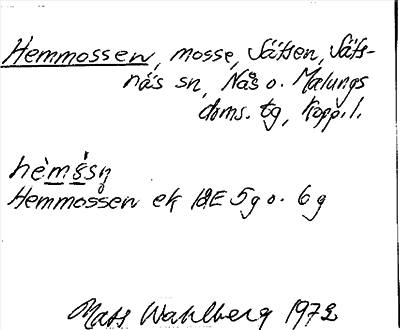 Hemmossen, mosse, Sätsen, Säfs-
näs sn, Nås o. Malungs
doms. tg, Kopp. l.
Hemmossen ek 12E 5g o. 6g
Mats Wahlberg 1972